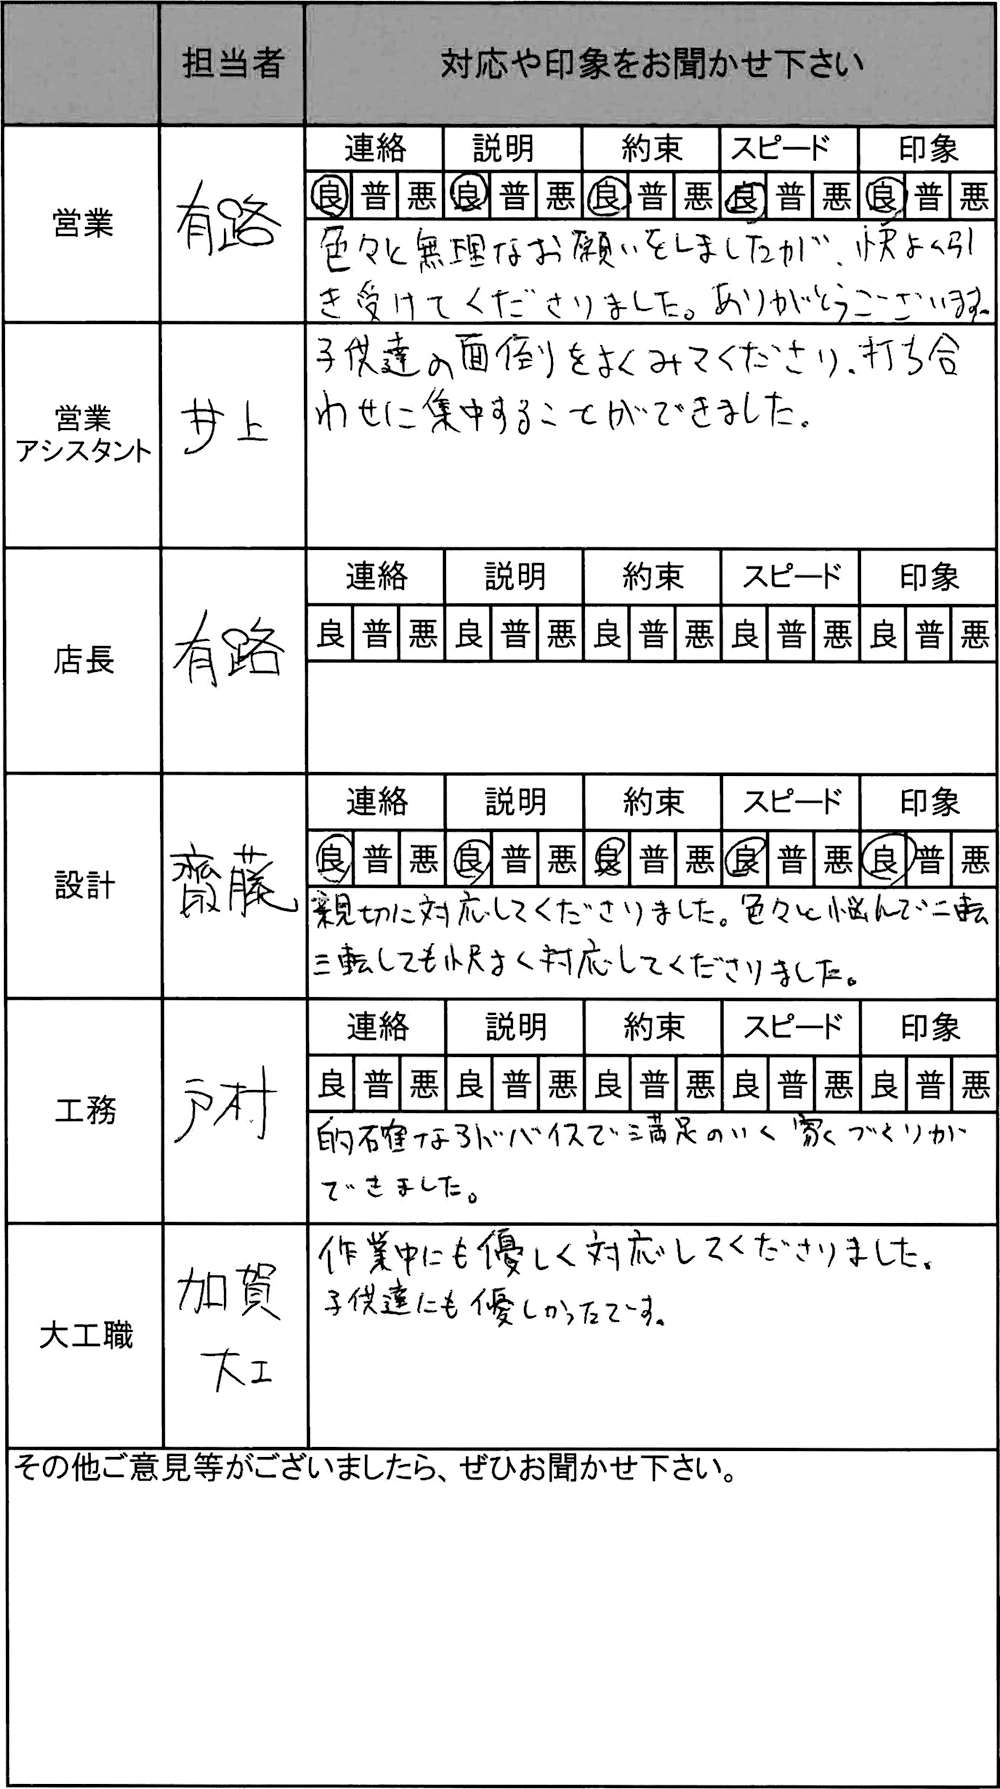 担当者 対応や印象をお聞かせ下さい
連絡 説明 約束 スピード 印象
良 普 悪 良 普 悪 良 普 悪 良 普 悪 良 普 悪
営業 有路
色々と無理なお願いをしましたが、快よく引
き受けてくださりました。ありがとうございます。
営業
アシスタント 井上
子供達の面倒りをよくみてくださり、打ち合
わせに集中することができました。
連絡 説明 約束 スピード 印象
良 普 悪 良 普 悪 良 普 悪 良 普 悪 良 普 悪
店長 有路
連絡 説明 約束 スピード 印象
良 普 悪 良 普 悪 良 普 悪 良 普 悪 良 普 悪
設計 齋藤
親切に対応してくださりました。色々と悩んで二転
三転しても快よく対応してくださりました。
連絡 説明 約束 スピード 印象
良 普 悪 良 普 悪 良 普 悪 良 普 悪 良 普 悪
工務 戸村
的確なアドバイスで満足のいく家づくりが
できました。
大工職 加賀
大工
作業中にも優しく対応してくださりました。
子供達にも優しかったです。
その他ご意見等がございましたら、ぜひお聞かせ下さい。